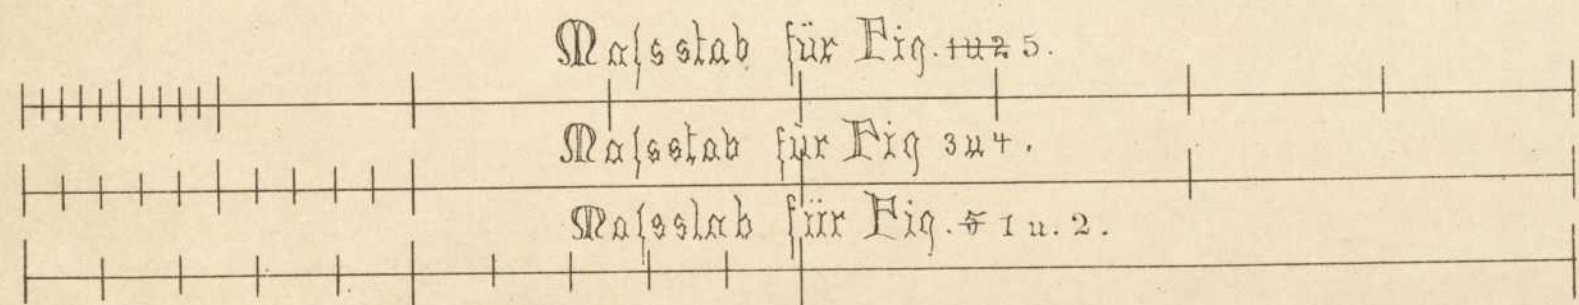 Maſsstab für Fig. 1u2 5.
Maſsstab für Fig 3u4.
Maſsstab für Fig. 5 1 u. 2.